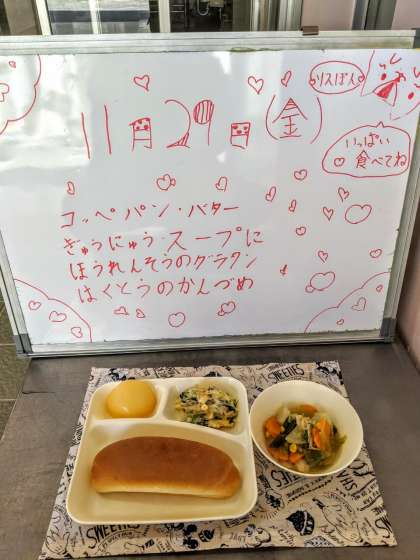 11月29日(金)
いっぱい
食べてね
コッペパン・バター
ぎゅうにゅう・スープに
ほうれんそうのグラタン
はくとうのかんづめ
SWEETIES